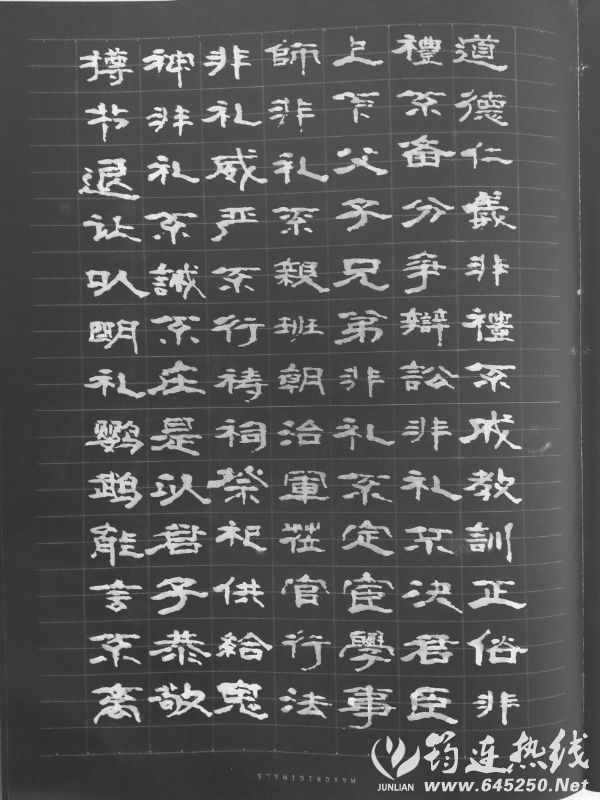 道德仁儀非禮不成教訓正俗非
禮不备分爭辯訟非礼不決君臣
上下父子兄弟非礼不定宦學事
師非礼不親班朝治軍莅官行法
非礼威严不行祷祠祭祀供給鬼
神非礼不誠不庄是以君子恭敬
撙节退让以明礼鹦鹉能言不离
MAXORIGINALS
筠连热线
JUNLIAN www.645250.Net